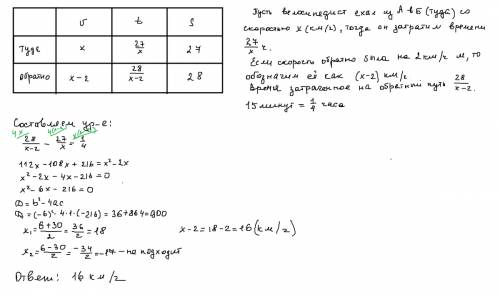 v t S
туде x 27/x 27
обратно x-2 28/x-2 28
Пусть велосипедист ехал из A в Б (туда) со
скоростью x (км/г), тогда он затратил времени
27/x г.
Если скорость обратно была на 2 км/г м, то
обозначим её как (x-2) км/г
Время затраченное на обратный путь 28/x-2.
15 минут = 1/4 часа
Составляем ур-е:
28/x-2 - 27/x = 1/4
112x-108x+216=x²-2x
x²-2x-4x-216=0
x²-6x-216=0
D=b²-4ac
D=(-6)²-4·1·(-216)=36+864=900
x₁=6+30/2=36/2=18
x-2=18-2=16(км/г)
x₂=6-30/2=-34/2=-17-не подходит
Ответ: 16 км/г